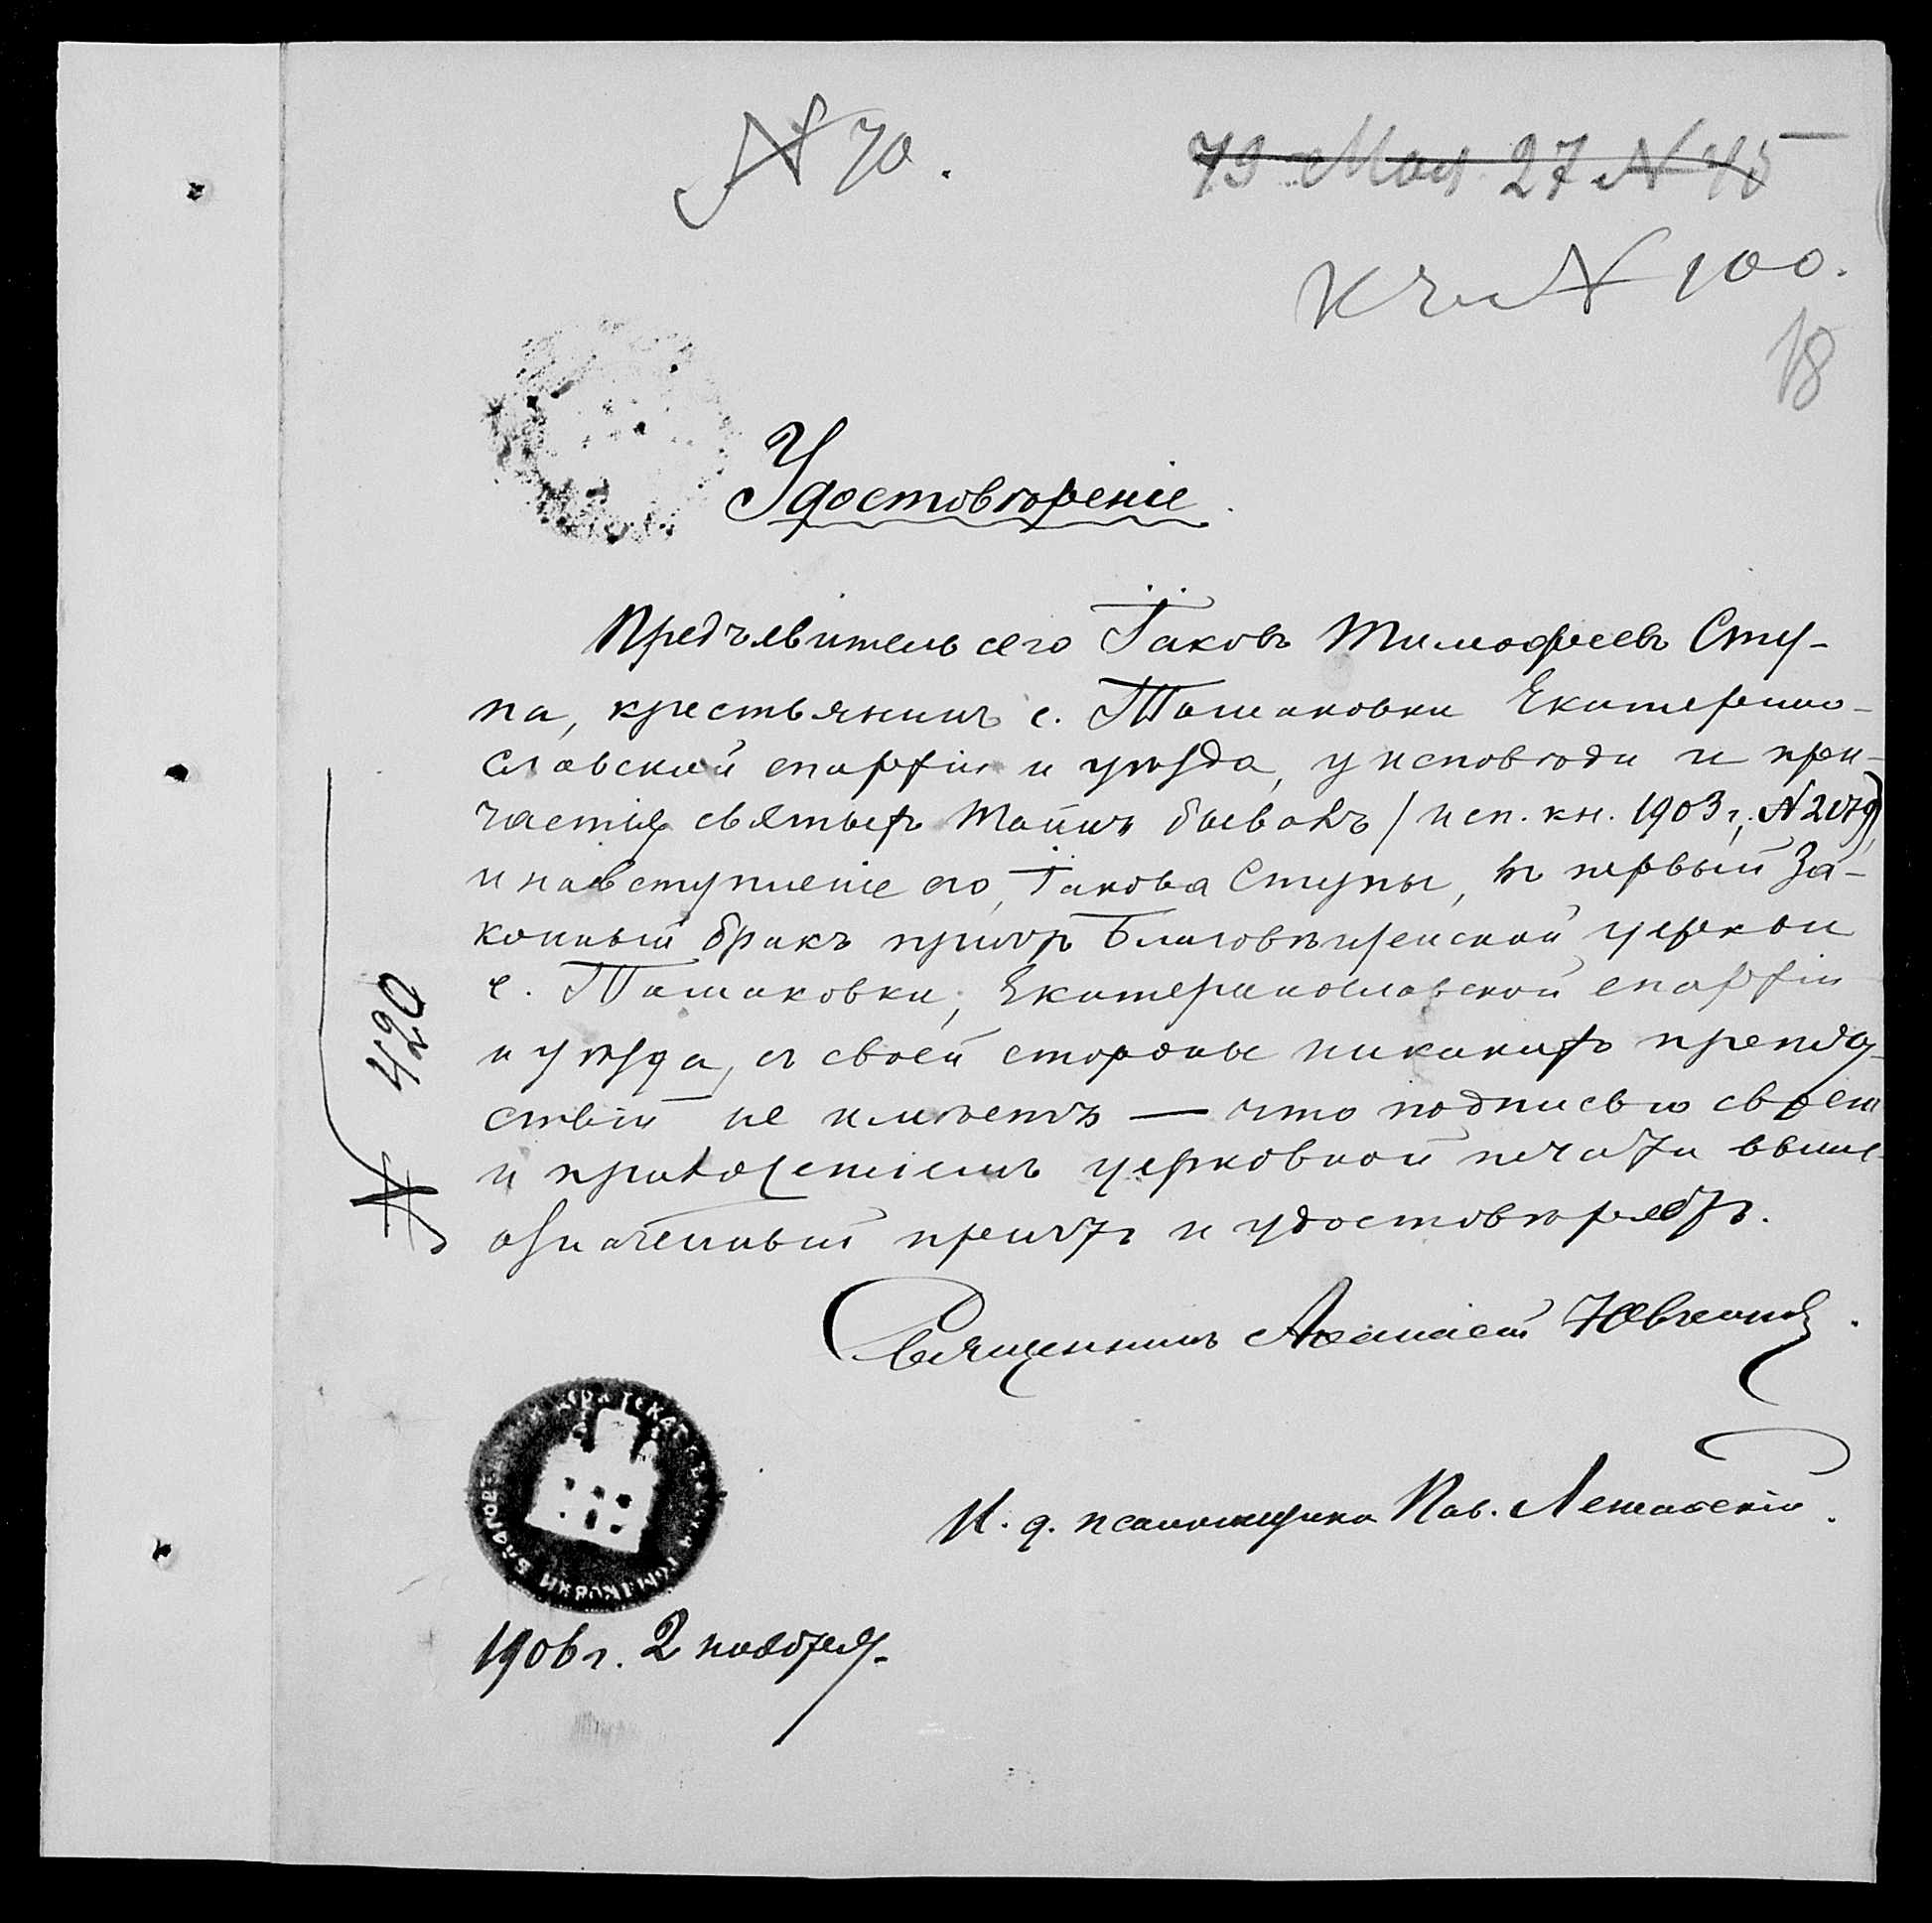 № 70.
73 Мая 27 № 45
К № 100.
18
Удостовѣреніе
Предъявитель сего Іаковъ Тимофеевъ Сту-
па, крестьянинъ с. Томаковки Екатерино-
славской епархіи и уѣзда, у исповѣди и при-
частія святыхъ Таинъ бывалъ (исп. кн. 1903 г., №
и на вступленіе его, Іакова Ступы, въ первый за-
конный бракъ причтъ Благовѣщенской церкви
с. Томаковки, Екатеринославской епархіи
и уѣзда, съ своей стороны никакихъ препят-
ствій не имѣетъ — что подписью своею
и приложеніемъ церковной печати выше-
означенный причтъ и удостовѣряетъ.
Священникъ
И. д. псаломщика Пав.
1906 г. 2 ноября.
№ 420